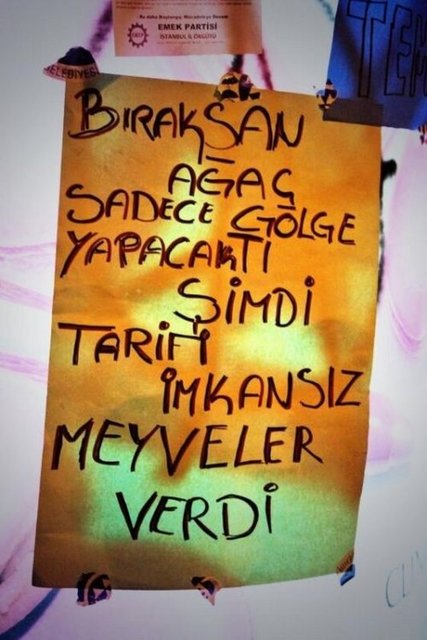 Bu daha Başlangıç Mücadeleye Devam
EMEK PARTİSİ
İSTANBUL İL ÖRGÜTÜ
BELEDİYESİ
BIRAKSAN
AĞAÇ
SADECE GÖLGE
YAPACAKTI
ŞİMDİ
TARİFİ
İMKANSIZ
MEYVELER
VERDİ